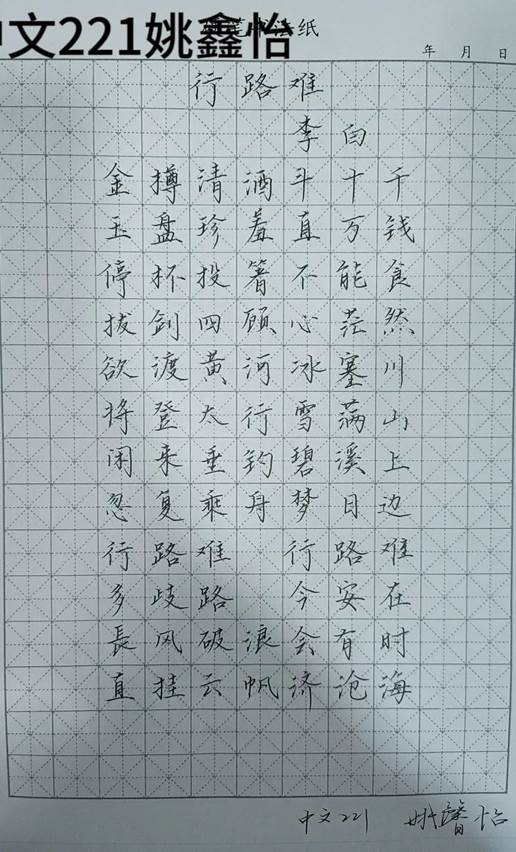 中文221姚鑫怡
法纸
年 月 日
行路难
李白
金樽清酒斗十千
玉盘珍羞直万钱
停杯投箸不能食
拔剑四顾心茫然
欲渡黄河冰塞川
将登太行雪满山
闲来垂钓碧溪上
忽复乘舟梦日边
行路难 行路难
多歧路 今安在
長风破浪会有时
直挂云帆济沧海
中文221 姚馨怡